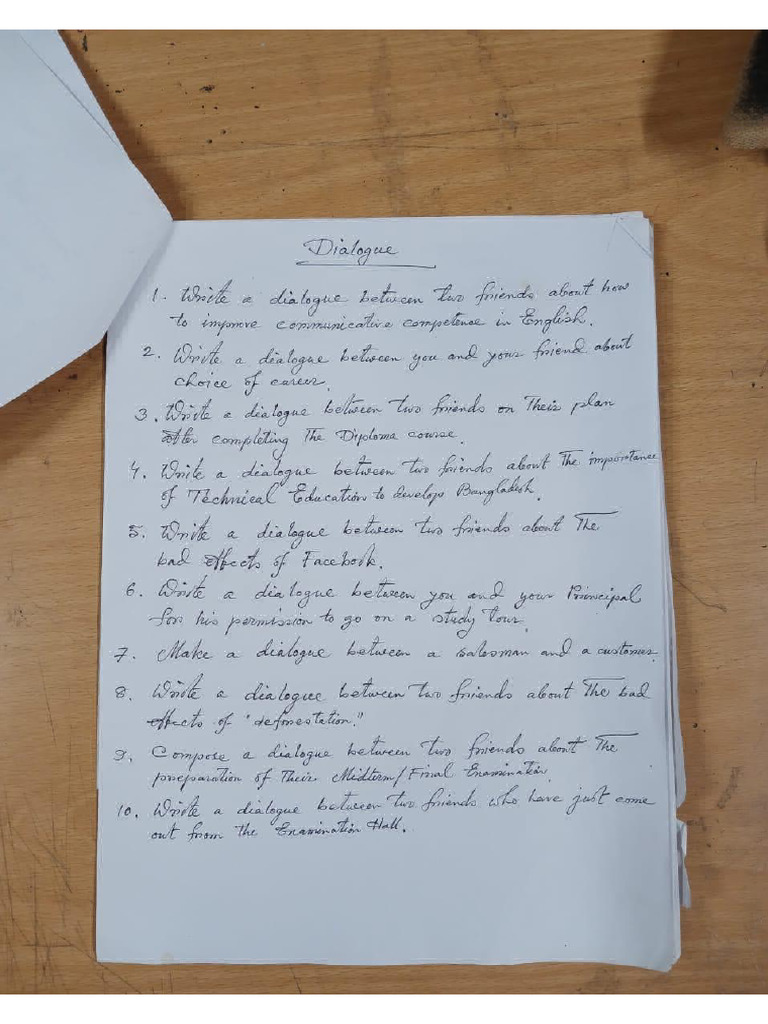 Dialogue
1. Write a dialogue between two friends about how
to improve communicative competence in English.
2. Write a dialogue between you and your friend about
choice of career.
3. Write a dialogue between two friends on Their plan
after completing The Diploma course.
4. Write a dialogue between two friends about The importance
of Technical Education to develop Bangladesh.
5. Write a dialogue between two friends about The
bad effects of Facebook.
6. Write a dialogue between you and your Principal
for his permission to go on a study tour.
7. Make a dialogue between a salesman and a customer.
8. Write a dialogue between two friends about The bad
effects of "deforestation."
9. Compose a dialogue between two friends about The
preparation of Their Midterm/Final Examination.
10. Write a dialogue between two friends who have just come
out from the Examination Hall.